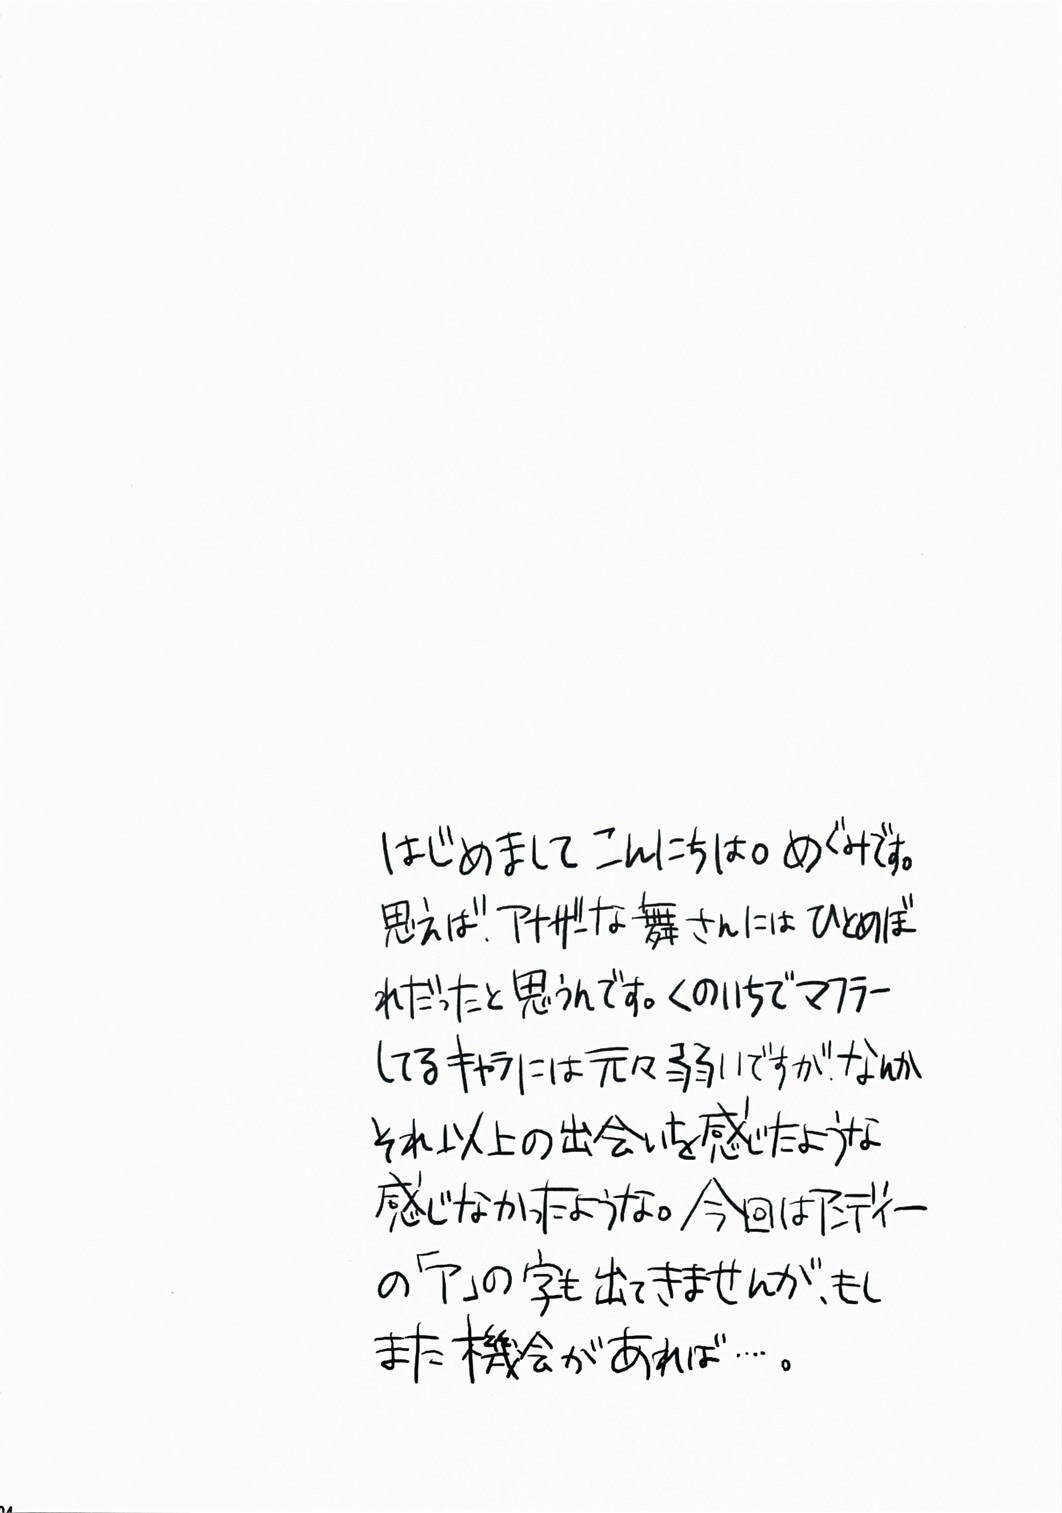 はじめましてこんにちは。めぐみです。
思えば、アナザーな舞さんにはひとめぼ
れだったと思うんです。くのいちでマフラー
してるキャラには元々弱いですが、なんか
それ以上の出会いを感じたような
感じなかったような。今回はアンディー
の「ア」の字も出てきませんが、もし
また機会があれば…。